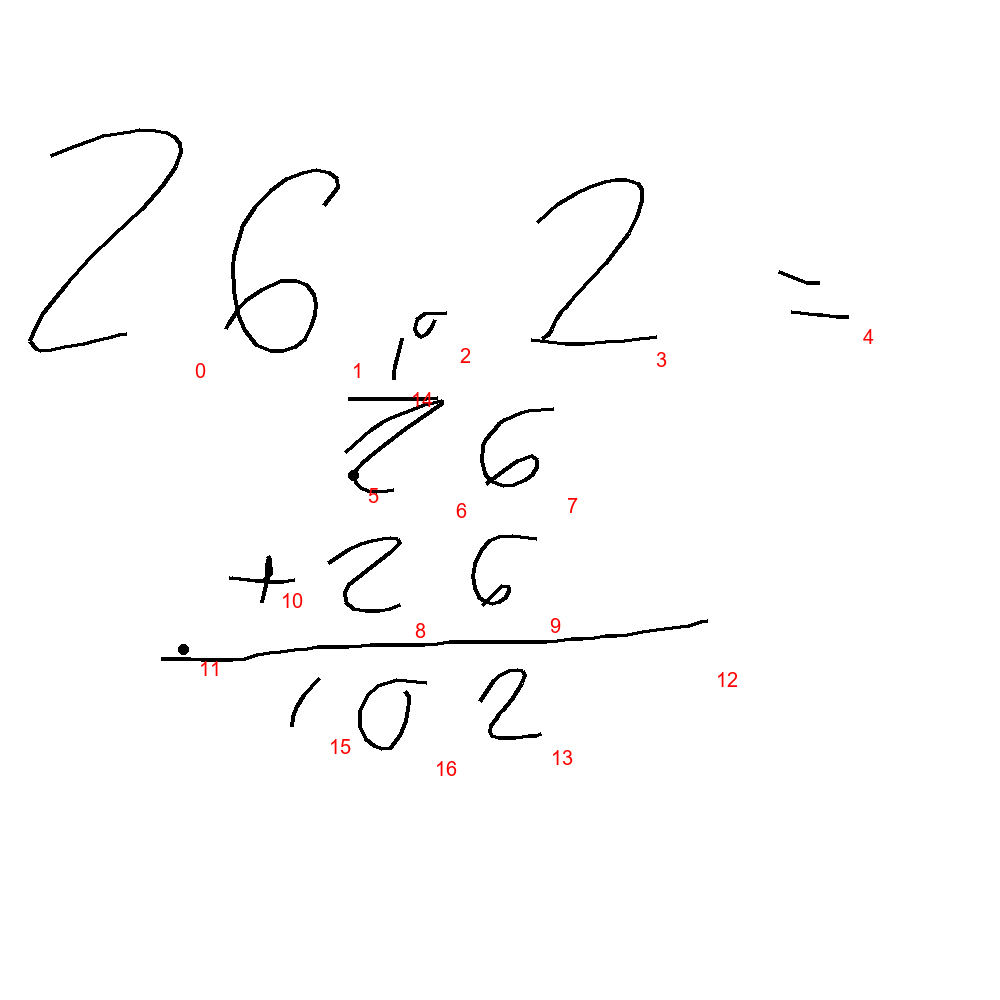 26 · 2 =
0 1 2 3 4
1
14
26
5 6 7
+ 26
10 8 9
11 12
102
15 16 13